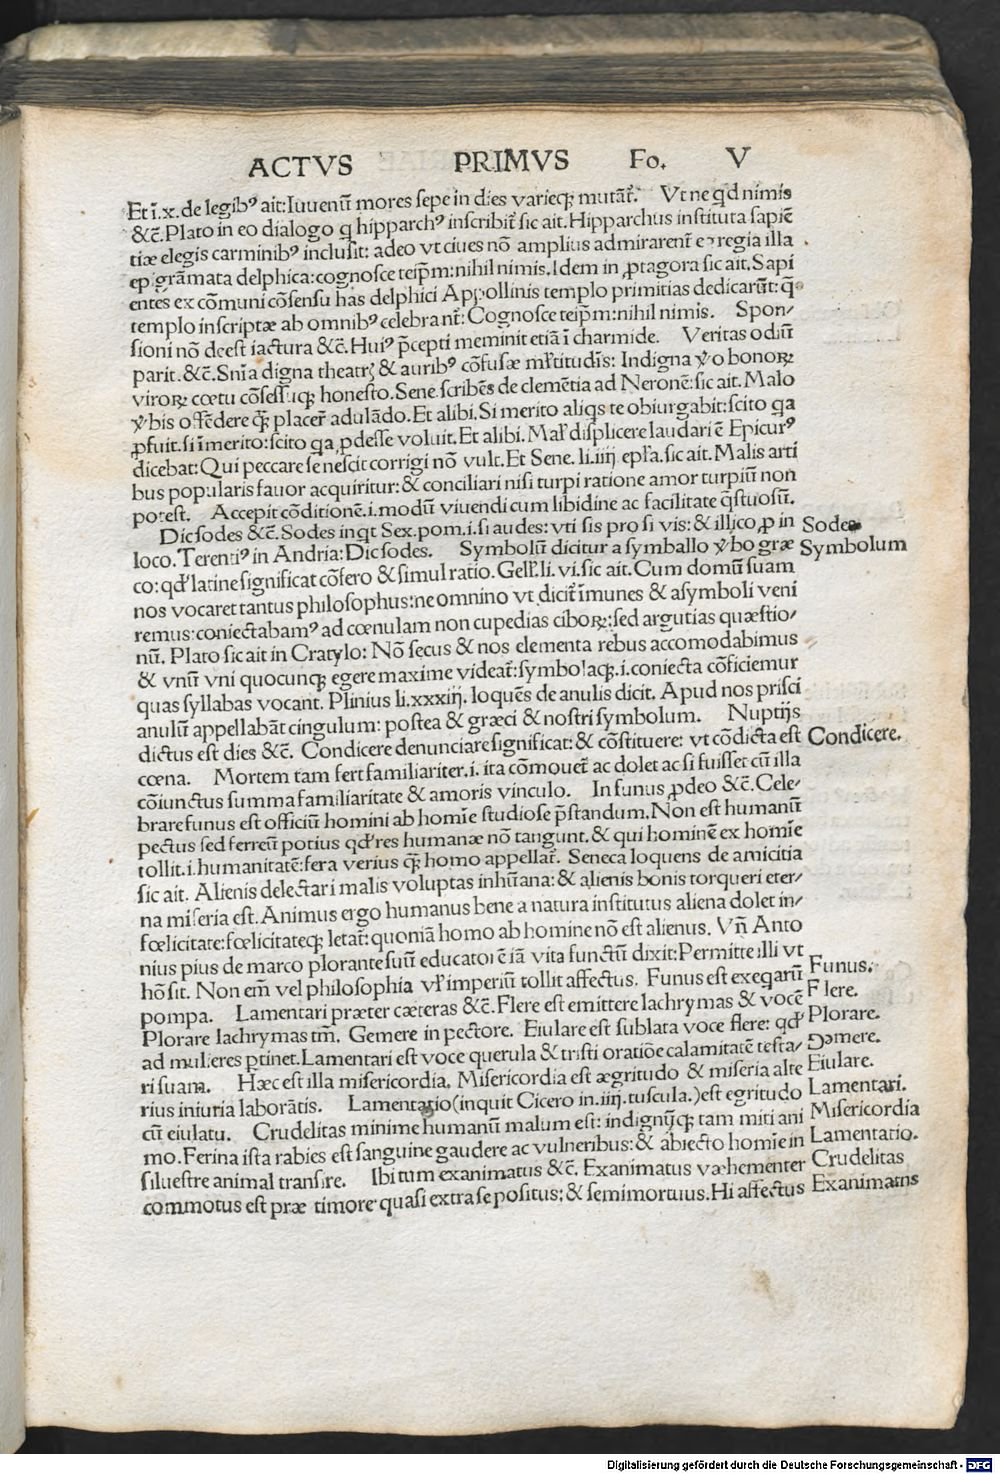 ACTVS PRIMVS Fo. V
Et i.x. de legibꝰ ait: Iuuenū mores sepe in dies varieqꝫ mutāt᷑. Vt ne qd nimis
&c̄. Plato in eo dialogo q hipparchꝰ inscribit᷑ sic ait. Hipparchus instituta sapiē
tiæ elegis carminibꝰ inclusit: adeo vt ciues nō amplius admirarent᷑ egregia illa
epigrāmata delphica: cognosce teip̄m: nihil nimis. Idem in ꝓtagora sic ait. Sapi
entes ex cōmuni cōsensu has delphici Appollinis templo primitias dedicarūt: q̄
templo inscriptæ ab omnibꝰ celebrant᷑: Cognosce teip̄m: nihil nimis. Spon/
sioni nō deest iactura &c̄. Huiꝰ p̄cepti meminit etiā ī charmide. Veritas odiū
parit. &c̄. Snīa digna theatrꝭ & auribꝰ cōfusæ mꝉtitudīs: Indigna ꝟo bonoꝝ
viroꝝ cœtu cōsessuqꝫ honesto. Sene. scribēs de clemētia ad Neronē: sic ait. Malo
ꝟbis offēdere qꝫ̄ placer᷑ adulādo. Et alibi. Si merito aliqs te obiurgabit: scito qa
ꝓfuit. si īmerito: scito qa ꝓdesse voluit. Et alibi. Maꝉ displicere laudari ē Epicurꝰ
dicebat: Qui peccare se nescit corrigi nō vult. Et Sene. li. iiij epꝉa. sic ait. Malis arti
bus popularis fauor acquiritur: & conciliari nisi turpi ratione amor turpiū non
potest. Accepit cōditionē .i. modū viuendi cum libidine ac facilitate q̄stuosū.
Dic sodes &c̄. Sodes inqt Sex. pom. i. si audes: vti sis pro si vis: & illico ꝓ in
Sodes
loco. Terentiꝰ in Andria: Dic sodes. Symbolū dicitur a symballo ꝟbo græ
Symbolum
co: qđ latine significat cōfero & simul ratio. Gelꝉ. li. vi. sic ait. Cum domū suam
nos vocaret tantus philosophus: ne omnino vt dicit᷑ īmunes & asymboli veni
remus: coniectabamꝰ ad cœnulam non cupedias ciboꝝ: sed argutias quæstio/
nū. Plato sic ait in Cratylo: Nō secus & nos elementa rebus accomodabimus
& vnū vni quocunqꝫ egere maxime videat᷑: symbolaqꝫ .i. coniecta cōficiemur
quas syllabas vocant. Plinius li. xxxiij. loquēs de anulis dicit. Apud nos prisci
anulū appellabāt cingulum: postea & græci & nostri symbolum. Nuptijs
dictus est dies &c̄. Condicere denunciare significat: & cōstituere: vt cōdicta est
Condicere.
cœna. Mortem tam fert familiariter .i. ita cōmouet᷑ ac dolet ac si fuisset cū illa
cōiunctus summa familiaritate & amoris vinculo. In funus ꝓdeo &c̄. Cele/
brare funus est officiū homini ab homīe studiose p̄standum. Non est humanū
pectus sed ferreū potius qđ res humanæ nō tangunt. & qui hominē ex homīe
tollit .i. humanitatē: fera verius qꝫ̄ homo appellat᷑. Seneca loquens de amicitia
sic ait. Alienis delectari malis voluptas inhūana: & alienis bonis torqueri eter/
na miseria est. Animus ergo humanus bene a natura institutus aliena dolet in/
fœlicitate: fœlicitateqꝫ letat᷑: quoniā homo ab homine nō est alienus. Vn̄ Anto
nius pius de marco plorante suū educatorē iā vita functū dixit: Permitte illi vt
hō sit. Non em̄ vel philosophia vꝉ imperiū tollit affectus. Funus est exeqarū
Funus.
pompa. Lamentari præter cæteras &c̄. Flere est emittere lachrymas & vocē
Flere.
Plorare lachrymas tm̄. Gemere in pectore. Eiulare est sublata voce flere: qđ
Plorare.
ad mulieres ꝑtinet. Lamentari est voce querula & tristi oratiōe calamitatē testa/
Gomere.
ri suam. Hæc est illa misericordia. Misericordia est ægritudo & miseria alte
Eiulare.
rius iniuria laborātis. Lamentatio (inquit Cicero in .iiij. tuscula.) est egritudo
Lamentari.
cū eiulatu. Crudelitas minime humanū malum est: indignūqꝫ tam miti ani
Misericordia
mo. Ferina ista rabies est sanguine gaudere ac vulneribus: & abiecto homīe in
Lamentatio.
siluestre animal transire. Ibi tum exanimatus &c̄. Exanimatus væhementer
Crudelitas
commotus est præ timore quasi extra se positus: & semimortuus. Hi affectus
Exanimatns
Digitalisierung gefördert durch die Deutsche Forschungsgemeinschaft - DFG